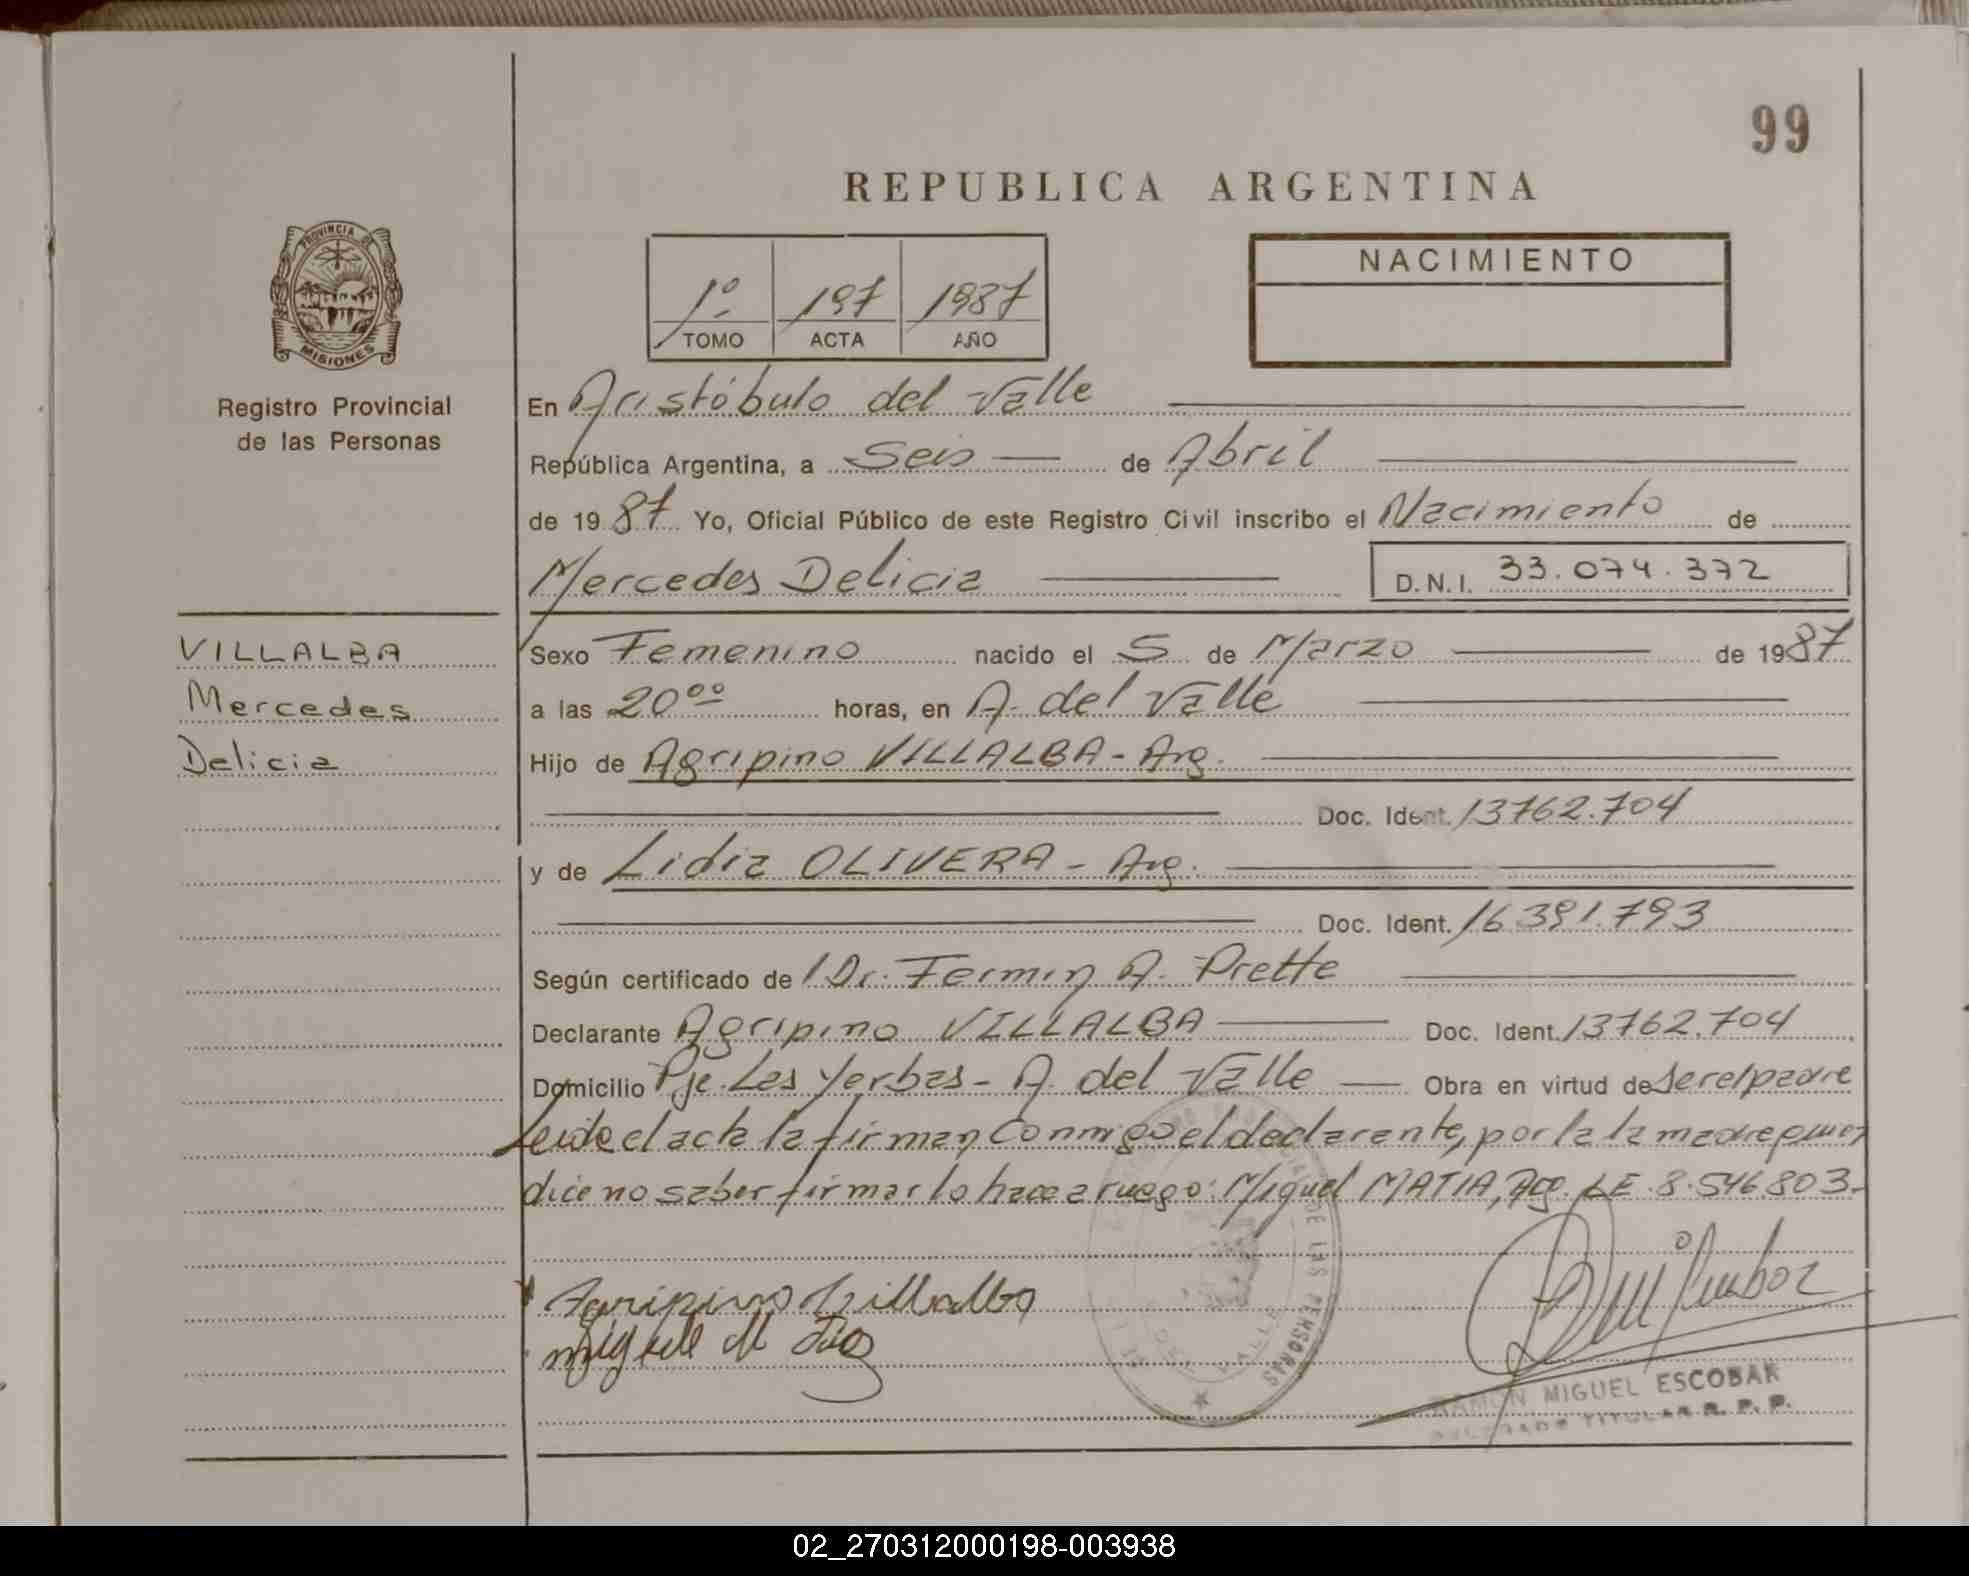 99
REPUBLICA ARGENTINA
PROVINCIA DE
MISIONES
Registro Provincial
de las Personas
1º 197 1987
TOMO ACTA AÑO
NACIMIENTO
En Aristóbulo del Valle
República Argentina, a Seis de Abril
de 1987 Yo, Oficial Público de este Registro Civil inscribo el Nacimiento de
Mercedes Delicia D.N.I. 33.074.372
VILLALBA
Mercedes
Delicia
Sexo Femenino nacido el 5 de Marzo de 1987
a las 20⁰⁰ horas, en A. del Valle
Hijo de Agripino VILLALBA - Arg.
Doc. Ident. 13762.704
y de Lidia OLIVERA - Arg.
Doc. Ident. 16391.793
Según certificado de Dr. Fermin A. Prette
Declarante Agripino VILLALBA Doc. Ident. 13762.704
Domicilio Pje. Las Yerbas - A. del Valle Obra en virtud de Ser el padre
Leida el acta la firman conmigo el declarante, por la la madre quien
dice no saber firmar lo hace a ruego: Miguel MATIA, Arg. LE 8.546803-
Agripino Villalba
Miguel M
DE LAS PERSONAS
DEL VALLE
RAMON MIGUEL ESCOBAR
DELEGADO TITULAR R. P. P.
02_270312000198-003938